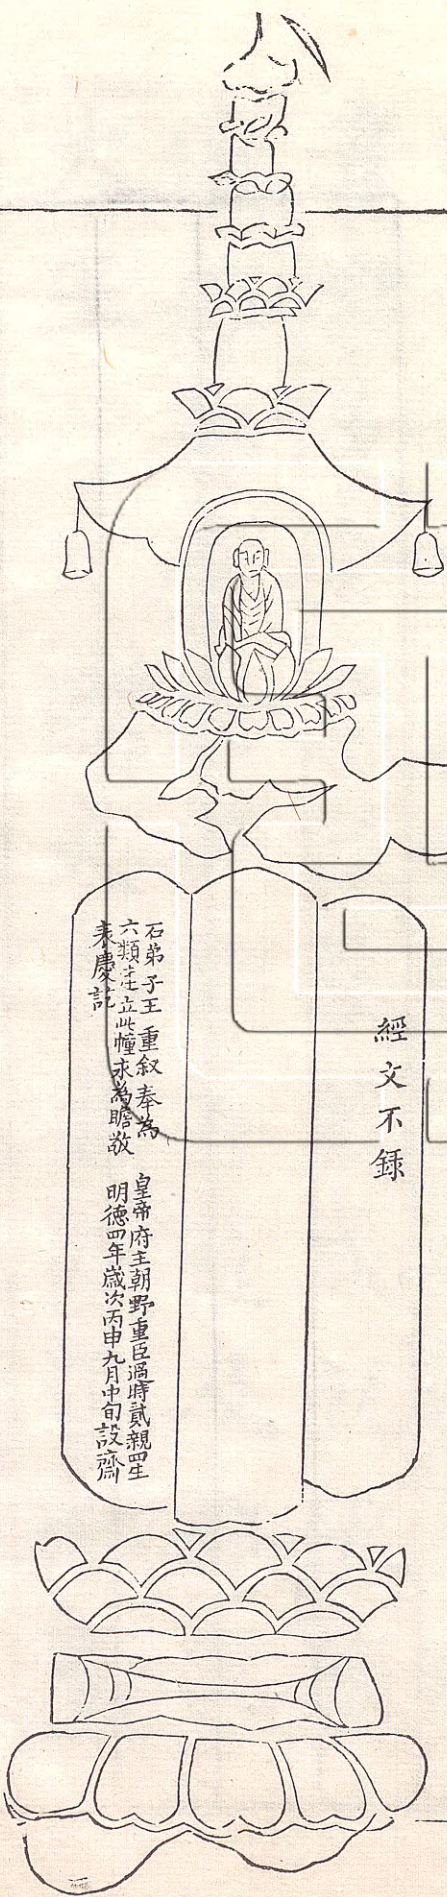 經文不録
石弟子王 重叙 奉為 皇帝府主朝野重臣過時貳親四生
六類走立此幢求為瞻敬 明德四年歲次丙申九月中旬設齋
表慶記